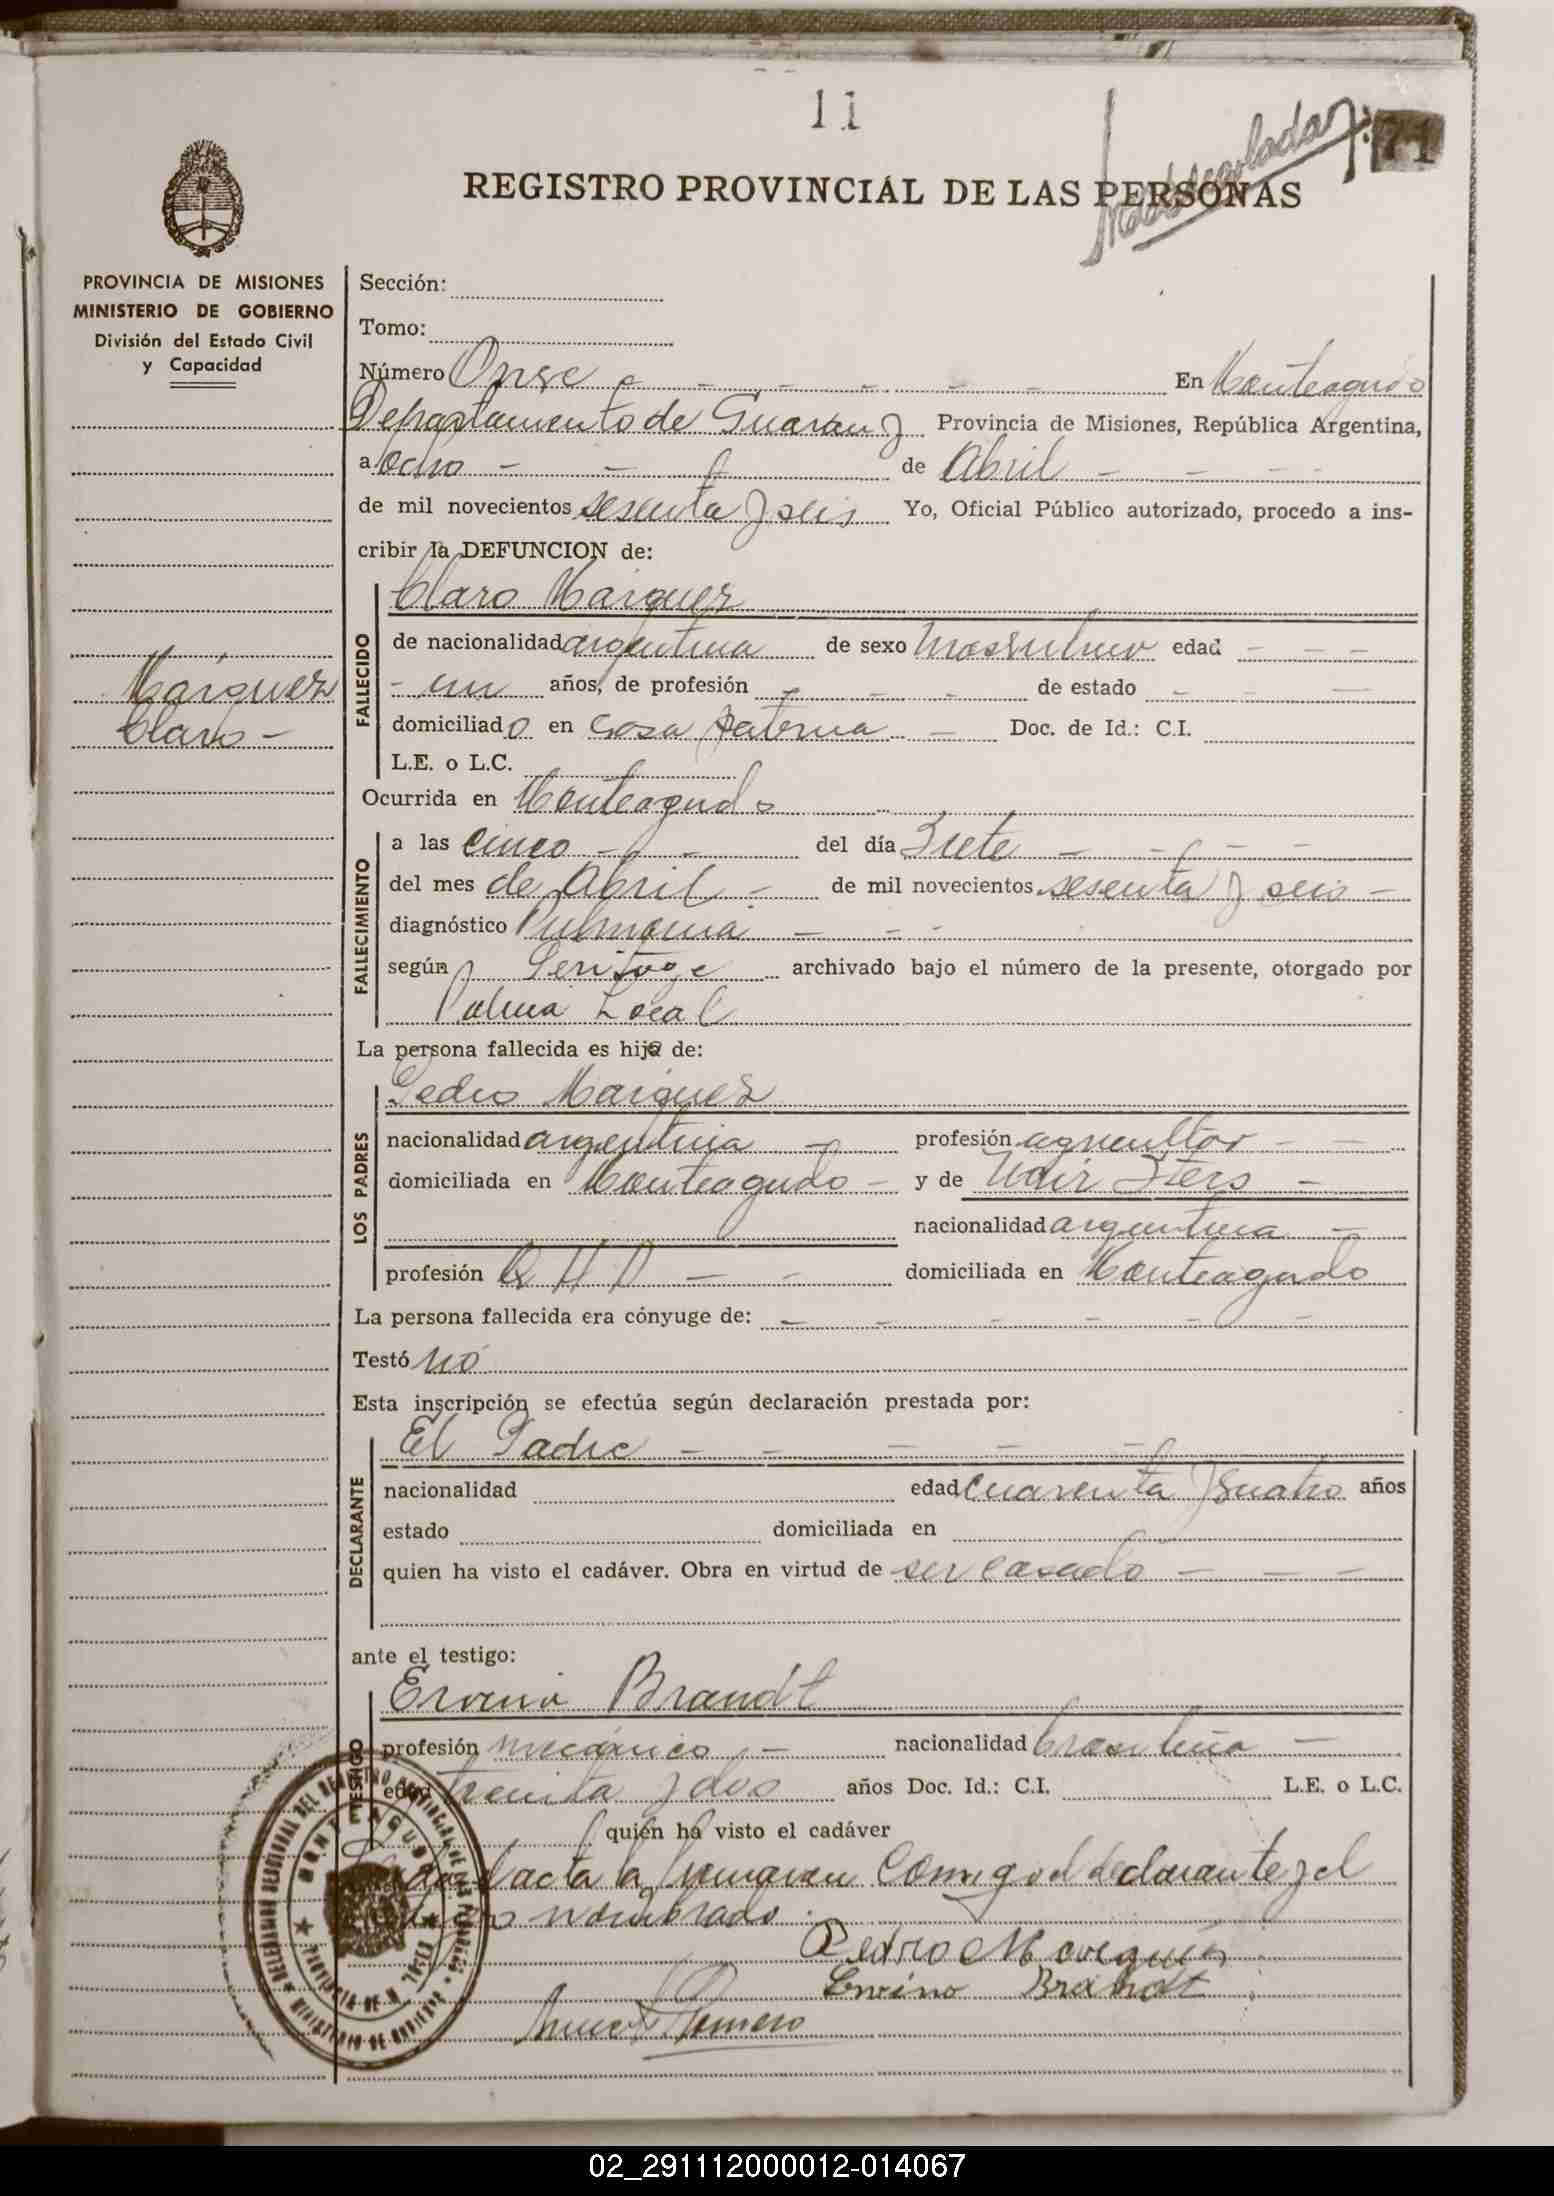 11
71
REGISTRO PROVINCIAL DE LAS PERSONAS
PROVINCIA DE MISIONES
MINISTERIO DE GOBIERNO
División del Estado Civil
y Capacidad
Marquez
Claro -
Sección:
Tomo:
Número Onse - - - - - - En Monteagudo
Departamento de Guarany Provincia de Misiones, República Argentina,
a ocho - - - de Abril - - - -
de mil novecientos sesenta y seis Yo, Oficial Público autorizado, procedo a ins-
cribir la DEFUNCION de:
FALLECIDO
Claro Marquez
de nacionalidad argentina de sexo masculino edad - - -
- un años, de profesión - - - de estado - - -
domiciliado en casa paterna - Doc. de Id.: C.I.
L.E. o L.C.
Ocurrida en Monteagudo
FALLECIMIENTO
a las cinco - - del día Siete - - - -
del mes de Abril - de mil novecientos sesenta y seis -
diagnóstico Pulmonia - - -
según archivado bajo el número de la presente, otorgado por
Local
La persona fallecida es hijo de:
LOS PADRES
Pedro Marquez
nacionalidad argentina - profesión agricultor - -
domiciliada en Monteagudo - y de Nair -
nacionalidad argentina -
profesión Q H D - - domiciliada en Monteagudo
La persona fallecida era cónyuge de: - - - - - -
Testó no
Esta inscripción se efectúa según declaración prestada por:
DECLARANTE
El Padre - - - - -
nacionalidad edad cuarenta y cuatro años
estado domiciliada en
quien ha visto el cadáver. Obra en virtud de ser casado - - -
ante el testigo:
TESTIGO
Ervino Brandt
profesión mecánico - nacionalidad brasileña -
edad treinta y dos años Doc. Id.: C.I. L.E. o L.C.
quien ha visto el cadáver
acta la firmaran Comigo el declarante y el
nombrado.
Pedro Marques
Ervino Brandt
Romero
MONTEAGUDO
MINISTERIO DE GOBIERNO
02_291112000012-014067